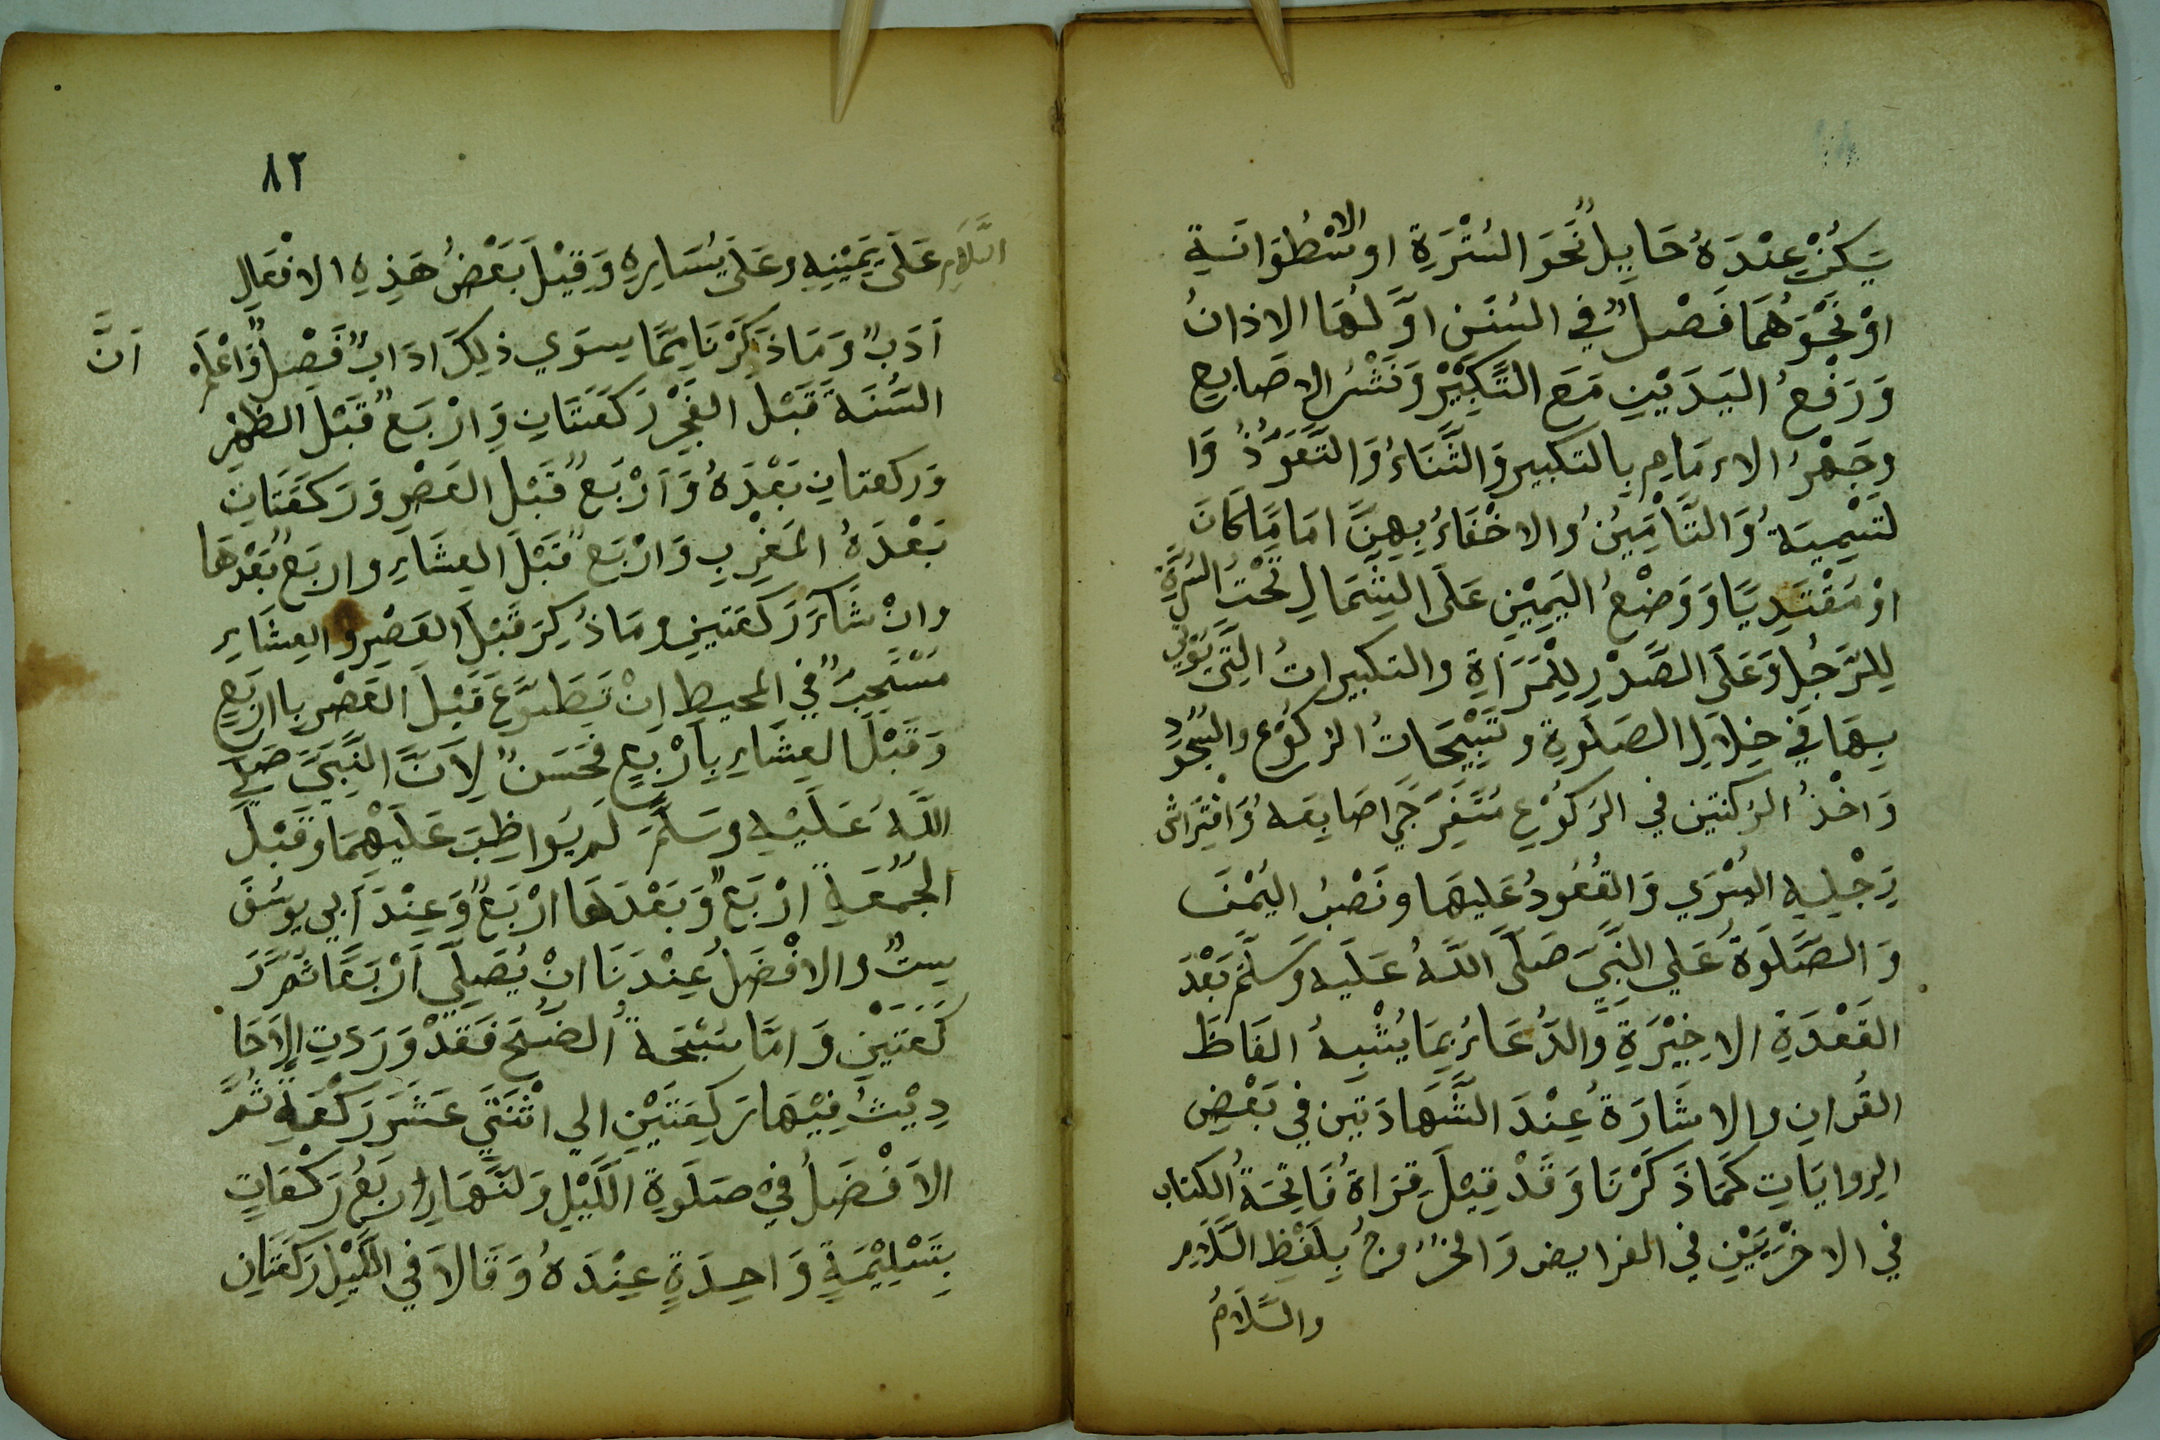 يَكُنْ عِنْدَهُ حَايِلٌ نَحْوَ السُّتْرَةِ اوِ الاسْطُوَانَةِ
اوْ نَحْوَهُمَا فَصْلٌ فِي السُنَنِ اوَّلُهَا الاذانُ
وَرَفْعُ اليَدَيْنِ مَعَ التَّكْبِيْرِ وَنَشْرُ الاصَابِعِ
وجَهْرُ الاءمَامِ بِالتكبيرِ وَالثَّنَاءُ وَالتَّعَوُّذُ وَا
لتَسْمِيَةُ وَالتَّأْمِيْنُ والاخْفَاءُ بِهِنَّ امَامًا كَانَ
اوْ مُقْتَدِيًا وَوَضْعُ اليَمِيْنِ عَلَى الشِّمَالِ تَحْتَ السُّرَّةِ
لِلرَّجُلِ وَعَلَى الصَّدْرِ لِلْمَرَاةِ والتكبيراتُ الَّتِي يُؤْتِي
بِهَا فِي خِلَالِ الصَلَوةِ وتَسْبِيْحَاتُ الرُكُوْعِ والسُّجُودِ
وَاخْذُ الرُكبتين في الرُكُوْعِ مُتَفَرِّجًا اصَابِعَهُ وَافْتِرَاش
رِجْلِهِ اليُسْرَي وَالقُعُودُ عَلَيهَا ونَصْبُ اليُمْنَى
وَالصَّلَوةُ عَلي النَّبِيِّ صَلَّى اللهُ عَلَيه وَسَلَّمَ بَعْدَ
القَعْدَةِ الاخِيْرَةِ وَالدُّعَاءُ بِمَا يُشْبِهُ الفَاظَ
القُرانِ والاشَارَةُ عِنْدَ الشَّهَادَتَينِ فِي بَعْضِ
الرِوايَاتِ كَمَا ذَكَرْنَا وَقَدْ قِيْلَ قِرَاةُ فَاتِحَةُ الكتابِ
فِي الاخْرَيَيْنِ فِي الفرايض وَالخُرُوجُ بِلَفْظِ السَّلَامِ
والسَّلَامُ
٨٢
السَّلَامِ عَلَى يَمِيْنِهِ وعَلَى يَسَارِهِ وَقِيْلَ بَعْضُ هَذِهِ الافعَالِ
اَدَبٌ وَمَا ذَكَرْنَا مِمَّا سِوَي ذلِكَ ادَابٌ فَصْلٌ وَاعْلَمْ اَنَّ
السُّنَةَ قَبْلَ الفَجْرِ رَكعَتَانِ وَارْبَعٌ قَبْلَ الظُهْرِ
وَركعتانِ بَعْدَهُ وَاَرْبَع قَبْلَ العَصْرِ وَرَكعَتَانِ
بَعْدَهُ المَغْرِبِ وَارْبَع قَبْلَ العِشَاءِ واربَع بَعْدَهَا
وانْ شَآءَ رَكعَتينِ ومَا ذُكِرَ قَبْلَ العَصْرِ والعِشَاءِ
مُسْتَحِبٌّ في المحيطِ انْ تَطَوَّعَ قَبْلَ العَصْرِ بِاارْبَعٍ
وَقَبْلَ العِشَاءِ بِاَرْبَعٍ فَحَسَنٌ لِاَنَّ النَّبِيَّ صَلَّى
اللهُ عَلَيْهِ وسَلَّمَ لَم يُوَاظِبْ عَلَيْهِمَا وقَبْلَ
الجُمُعَةِ ارْبَعٌ وَبَعْدَهَا ارْبَعٌ وَعِنْدَ اَبي يوسُفَ
سِتٌّ والافْضَلُ عِنْدَنَا انْ يُصَلِّي اَرْبَعًا ثُمَّ رَ
كْعَتَيْنِ وَامَّا سُبْحَةُ الضُحَى فَقَدْ وَرَدَتِ الاَحَا
دِيْثُ فِيْهَا رَكعَتَيْنِ الي اثْنَتَي عَشَرَ رَكْعَةً ثُمَّ
الاَفْضَلُ فِيْ صَلَوةِ اللَّيْلِ وَلنَّهَارِ ارْبَعُ رَكْعَاتٍ
بِتَسْلِيْمَةٍ وَاحِدَةٍ عِنْدَهُ وَقَالاَ فِي اللَّيْلِ رَكعَتَانِ